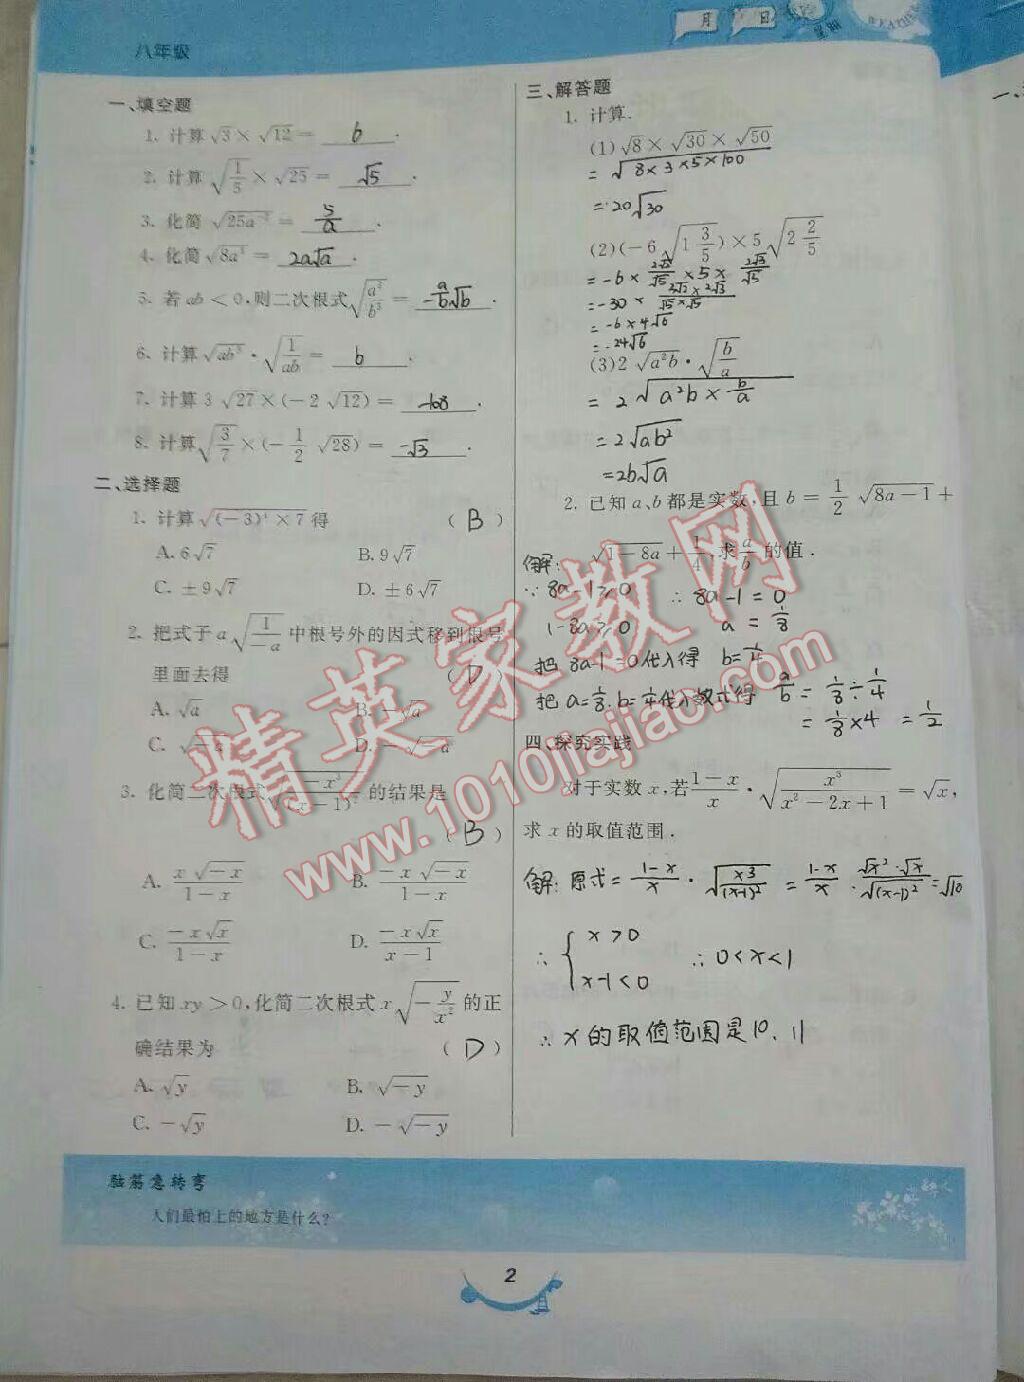 月 日 星期 WEATHER
八年级
一、填空题
1. 计算√3×√12= 6 .
2. 计算√(1/5)×√25= √5 .
3. 化简√(25a⁻²)= 5/a .
4. 化简√(8a³)= 2a√a .
5. 若ab<0,则二次根式√(a²/b³)= -a/b√b .
6. 计算√(ab³)·√(1/ab)= b .
7. 计算3√27×(-2√12)= -108 .
8. 计算√(3/7)×(-1/2√28)= -√3 .
二、选择题
1. 计算√((-3)⁴×7)得 ( B )
A. 6√7 B. 9√7
C. ±9√7 D. ±6√7
2. 把式子a√(1/-a)中根号外的因式移到根号
里面去得 ( D )
A. √a B. -√a
C. √-a D. -√-a
3. 化简二次根式 的结果是
( B )
A. x√-x/1-x B. -x√-x/1-x
C. -x√x/1-x D. -x√x/x-1
4. 已知xy>0,化简二次根式x√(-y/x²)的正
确结果为 ( D )
A. √y B. √-y
C. -√y D. -√-y
三、解答题
1. 计算.
(1)√8×√30×√50
=√(8×3×5×100)
=20√30
(2)(-6√(1 3/5))×5√(2 2/5)
=-6× 2√2/√5 ×5× 2√3/√5
=-30× 2√2×2√3/√5×√5
=-6×4√6
=-24√6
(3)2√(a²b)·√(b/a)
=2√(a²b×b/a)
=2√(ab²)
=2b√a
2. 已知a、b都是实数,且b=1/2√(8a-1)+
√(1-8a)+1/4,求a/b的值.
解:
∵8a-1≥0 ∴8a-1=0
1-8a≥0 a=1/8
把8a-1=0代入得 b=1/4
把a=1/8.b=1/4代入数式得 a/b=1/8÷1/4
=1/8×4 =1/2
四、探究实践
对于实数x,若1-x/x·√(x³/x²-2x+1)=√x,
求x的取值范围.
解:原式=1-x/x·√(x3/(x-1)²)=1-x/x·√x²·√x/√(x-1)²=√10
∴{x>0
x-1<0 ∴0<x<1
∴x的取值范围是10、11
脑筋急转弯
人们最怕上的地方是什么?
2
精英家教网
www.1010jiajiao.com